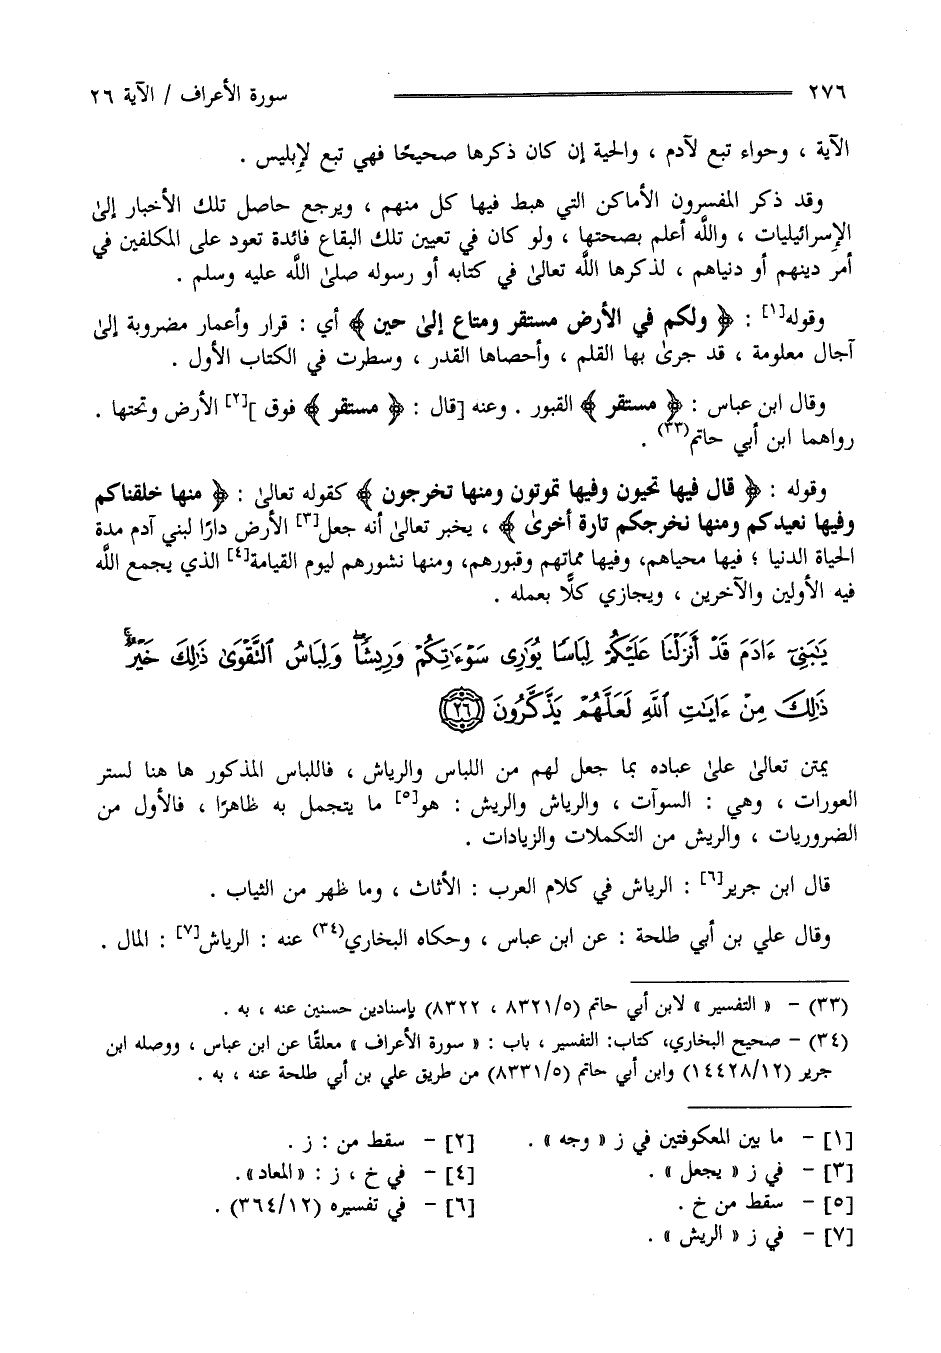 ٢٧٦ سورة الأعراف / الآية ٢٦
الآية ، وحواء تبع لآدم ، والحية إن كان ذكرها صحيحًا فهي تبع لإبليس .
وقد ذكر المفسرون الأماكن التي هبط فيها كل منهم ، ويرجع حاصل تلك الأخبار إلىٰ
الإسرائيليات ، واللَّه أعلم بصحتها ، ولو كان في تعيين تلك البقاع فائدة تعود على المكلفين في
أمر دينهم أو دنياهم ، لذكرها اللَّه تعالىٰ في كتابه أو رسوله صلىٰ اللَّه عليه وسلم .
وقوله[١] : ﴿ ولكم في الأرض مستقر ومتاع إلىٰ حين ﴾ أي : قرار وأعمار مضروبة إلىٰ
آجال معلومة ، قد جرىٰ بها القلم ، وأحصاها القدر ، وسطرت في الكتاب الأول .
وقال ابن عباس : ﴿ مستقر ﴾ القبور . وعنه [قال : ﴿ مستقر ﴾ فوق ][٢] الأرض وتحتها .
رواهما ابن أبي حاتم(٣٣) .
وقوله : ﴿ قال فيها تحيون وفيها تموتون ومنها تخرجون ﴾ كقوله تعالىٰ : ﴿ منها خلقناكم
وفيها نعيدكم ومنها نخرجكم تارة أخرىٰ ﴾ ، يخبر تعالىٰ أنه جعل[٣] الأرض دارًا لبني آدم مدة
الحياة الدنيا ؛ فيها محياهم، وفيها مماتهم وقبورهم، ومنها نشورهم ليوم القيامة[٤] الذي يجمع اللَّه
فيه الأولين والآخرين ، ويجازي كلًّا بعمله .
يَـٰبَنِىٓ ءَادَمَ قَدْ أَنزَلْنَا عَلَيْكُمْ لِبَاسًا يُوَٰرِى سَوْءَٰتِكُمْ وَرِيشًا ۖ وَلِبَاسُ ٱلتَّقْوَىٰ ذَٰلِكَ خَيْرٌ ۚ
ذَٰلِكَ مِنْ ءَايَـٰتِ ٱللَّهِ لَعَلَّهُمْ يَذَّكَّرُونَ ٢٦
يمتن تعالىٰ علىٰ عباده بما جعل لهم من اللباس والرياش ، فاللباس المذكور ها هنا لستر
العورات ، وهي : السوآت ، والرياش والريش : هو[٥] ما يتجمل به ظاهرًا ، فالأول من
الضروريات ، والريش من التكملات والزيادات .
قال ابن جرير[٦] : الرياش في كلام العرب : الأثاث ، وما ظهر من الثياب .
وقال علي بن أبي طلحة : عن ابن عباس ، وحكاه البخاري(٣٤) عنه : الرياش[٧] : المال .
(٣٣) - « التفسير » لابن أبي حاتم (٨٣٢١/٥ ، ٨٣٢٢) بإسنادين حسنين عنه ، به .
(٣٤) - صحيح البخاري، كتاب: التفسير ، باب : « سورة الأعراف » معلقًا عن ابن عباس ، ووصله ابن
جرير (١٤٤٢٨/١٢) وابن أبي حاتم (٨٣٣١/٥) من طريق علي بن أبي طلحة عنه ، به .
[١] - ما بين المعكوفتين في ز « وجه » . [٢] - سقط من : ز .
[٣] - في ز « يجعل » . [٤] - في خ ، ز : «المعاد».
[٥] - سقط من خ . [٦] - في تفسيره (٣٦٤/١٢) .
[٧] - في ز « الريش » .